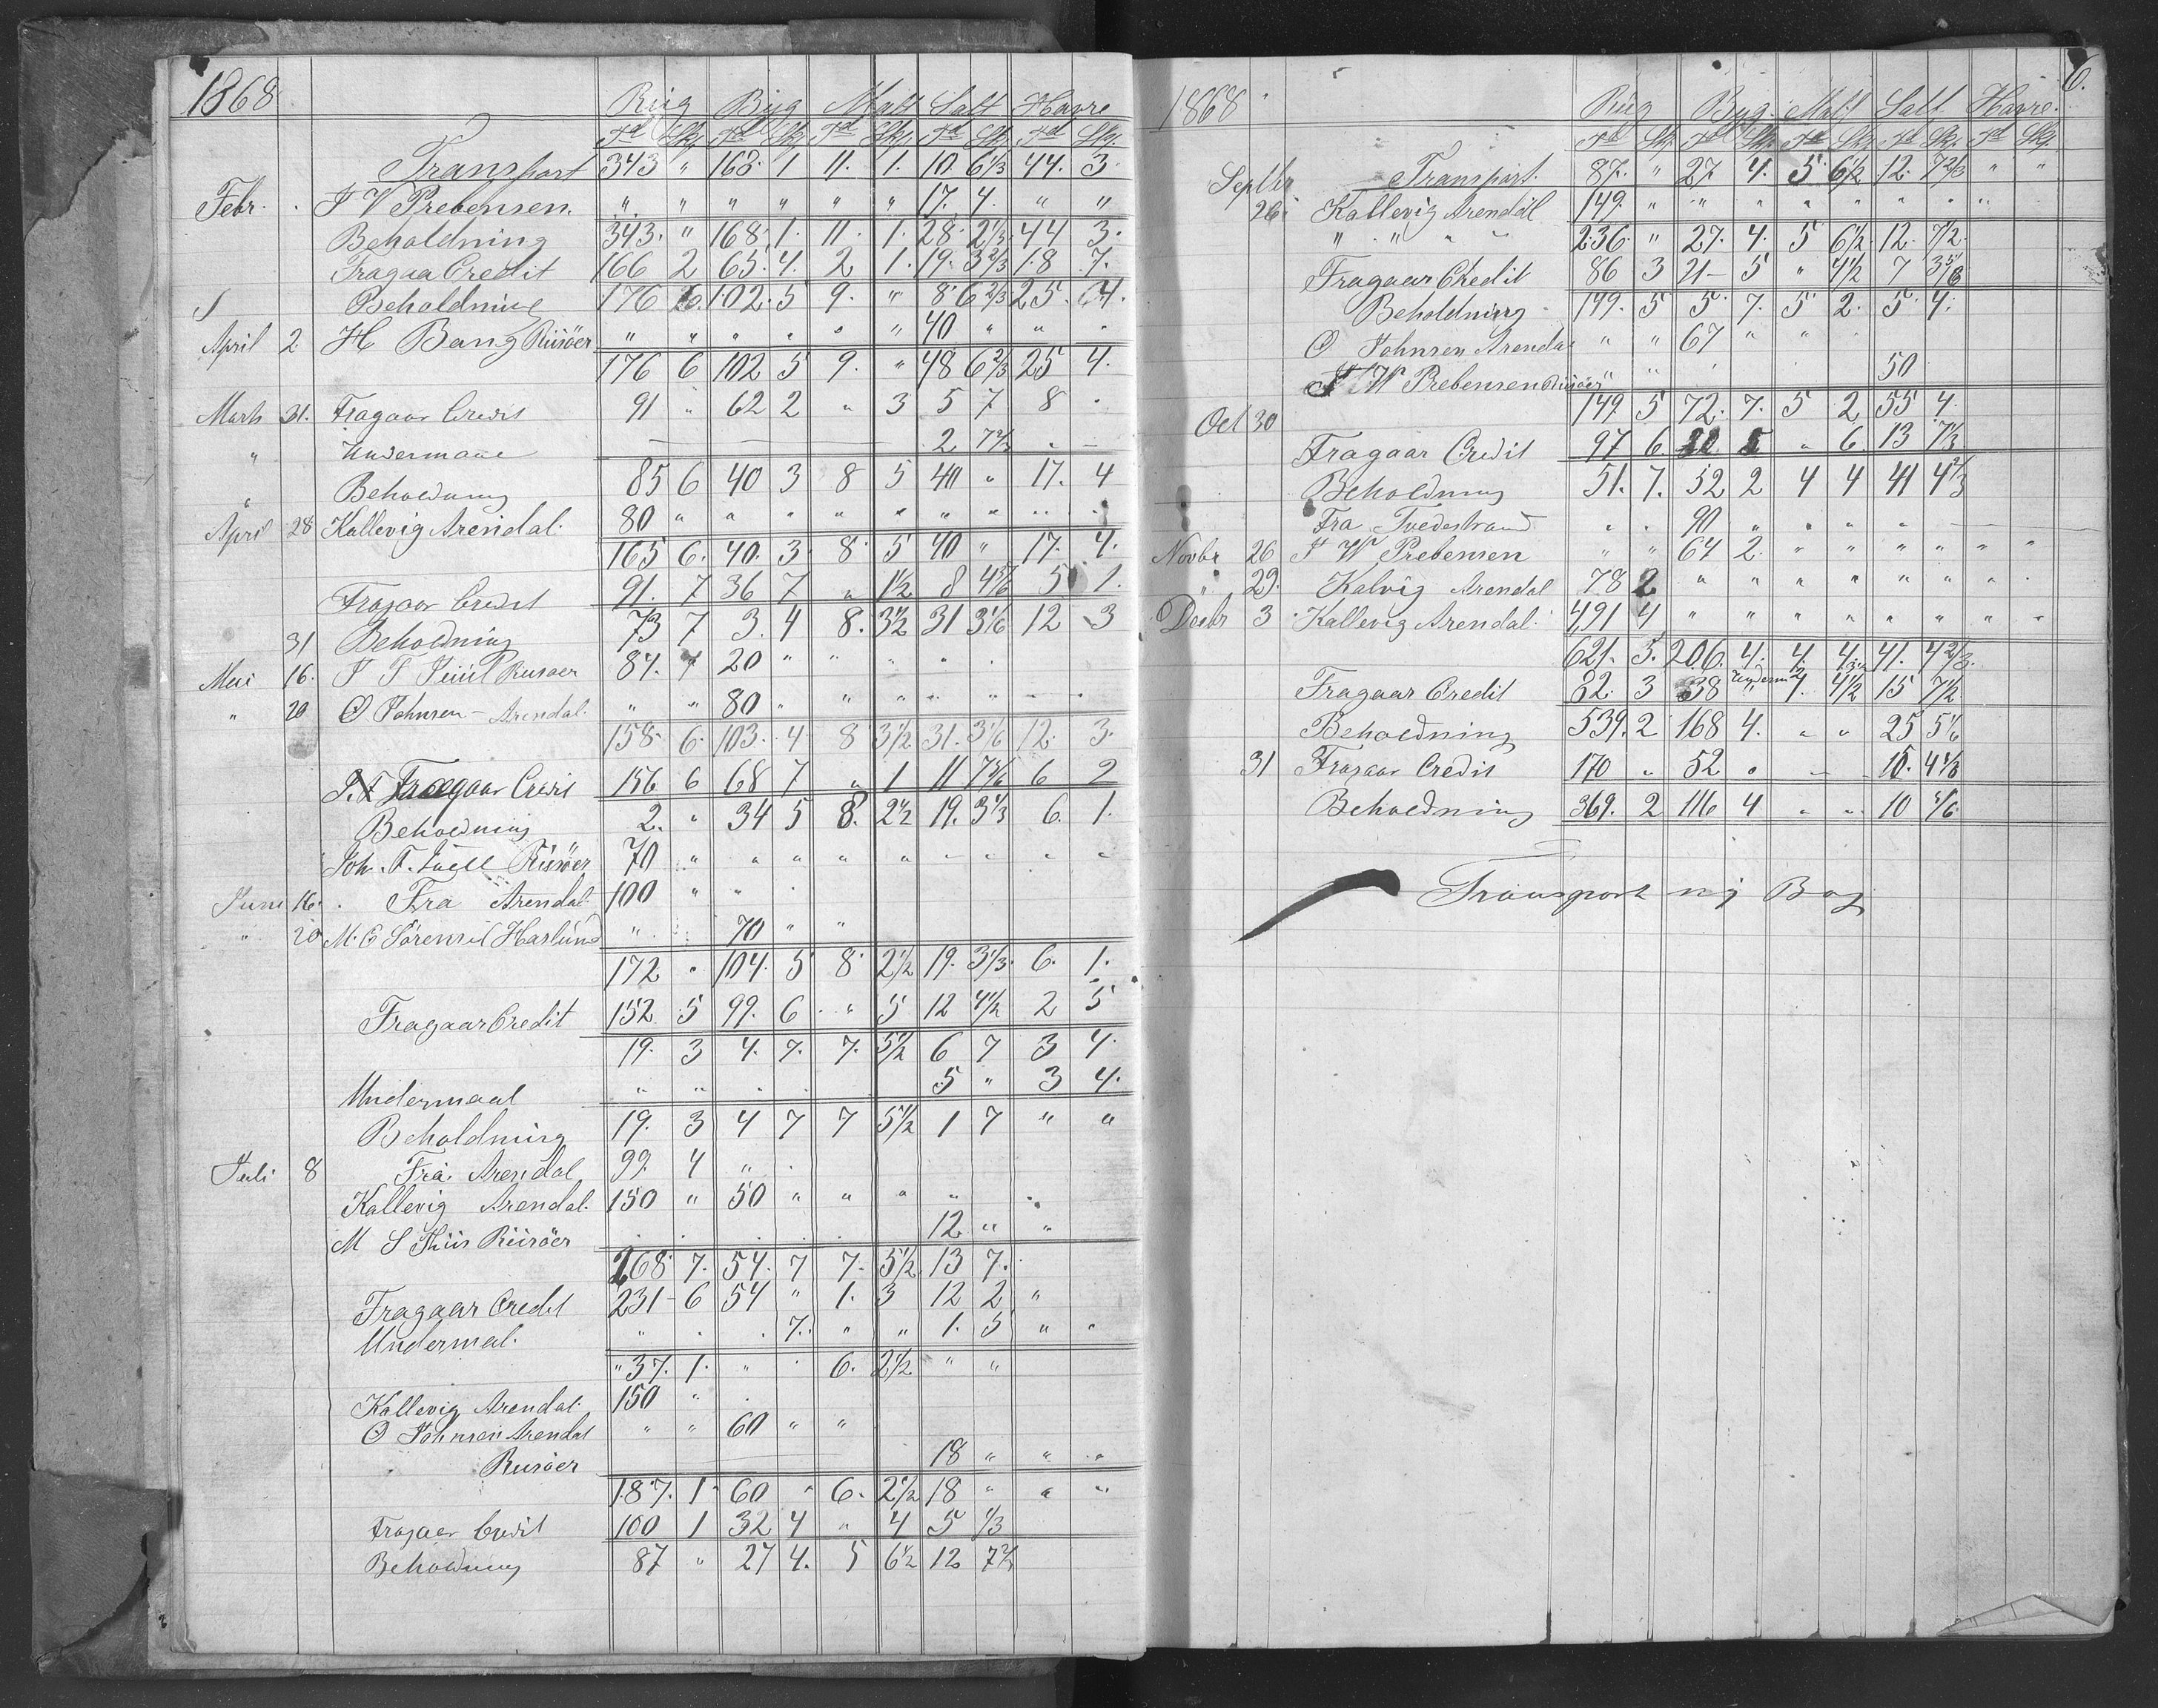 1868 Rug Byg Malt Salt Havre
Td Skj Td Skj Td Skj Td Skj Td Skj
Transport 343 " 168 1 11 1 10 6 1/3 44 3
Febr. J W Prebensen " " " " " " 17 4 " "
Beholdning 343 " 168 1 11 1 28 2 1/3 44 3
Fragaa Credit 166 2 65 4 2 1 19 3 2/3 18 7
Beholdning 176 6 102 5 9 " 8 6 2/3 25 4
April 2 H Bang Riisöer " " " " " " 40 " " "
176 6 102 5 9 " 48 6 2/3 25 4
Marts 31 Fragaar Credit 91 " 62 2 " 3 5 7 8 "
" Undermaal 2 7 2/3 " -
" Beholdning 85 6 40 3 8 5 40 " 17 4
April 28 Kallevig Arendal 80 " " " " " " " " "
165 6 40 3 8 5 40 " 17 4
Fragaar Credit 91 7 36 7 " 1 1/2 8 4 5/6 5 1
31 Beholdning 73 7 3 4 8 3 1/2 31 3 1/6 12 3
Mai 16 J F Juul Risöer 84 7 20 " " " "
" 20 O Johnsen - Arendal " " 80 " " " " " " "
158 6 103 4 8 3 1/2 31 3 1/6 12 3
Fragaar Credit 156 6 68 7 " 1 11 7 5/6 6 2
Beholdning 2 " 34 5 8 2 1/2 19 3 1/3 6 1
Joh. F. Juell Riisöer 70 " " " " " " " " "
Juni 16 Fra Arendal 100 " "
" 20 M. C Sörensel Haslund " 70 " "
172 " 104 5 8 2 1/2 19 3 1/3 6 1
Fragaar Credit 152 5 99 6 " 5 12 4 1/2 2 5
19 3 4 7 7 5 1/2 6 7 3 4
Undermaal " " " 5 " 3 4
Beholdning 19 3 4 7 7 5 1/2 1 7 " "
Juli 8 Fra Arendal 99 4 "
Kallevig Arendal 150 " 50 " " " "
M S Thiis Riisöer 12 " "
268 7 54 7 7 5 1/2 13 7
Fragaar Credit 231 6 54 " 1 3 12 2 "
Undermal " 7 " " 1 5 " "
" 37 1 " 6 2 1/2 " "
Kallevig Arendal 150 "
O Johnsen Arendal " " 60 " "
Rusöer 18 " " "
187 1 60 " 6 2 1/2 18 " " "
Fragaar Credit 100 1 32 4 " 4 5 1/3
Beholdning 87 " 27 4 5 6 1/2 12 7 2/3
6.
1868 Rug Byg Malt Salt Havre
Td Skj Td Skj Td Skj Td Skj Td Skj
Septbr Transport 87 " 27 4 5 6 1/2 12 7 2/3 " "
26 Kallevig Arendal 149 " " " " " " " "
" " " " 236 " 27 4 5 6 1/2 12 7 1/2
Fragaar Credit 86 3 21 - 5 " 4 1/2 7 3 5/6
Beholdning 149 5 5 7 5 2 5 4
O Johnsen Arendal " " 67 " "
J W Prebensen Riisöer " 50
149 5 72 7 5 2 55 4
Oct 30 Fragaar Credit 97 6 5 " 6 13 7 1/3
Beholdning 51 7 52 2 4 4 41 4 2/3
Fra Tvedestrand " " 90 " " " "
Novbr 26 J W Prebensen " " 64 2 " " " " " "
" 29 Kalvig Arendal 78 2 " " " " " " "
Decbr 3 Kallevig Arendal 491 4 " " " " " " " "
621 5 206 4 4 4 41 4 2/3
Fragaar Credit 82 3 38 " 4 4 1/2 15 7 1/2
Beholdning 539 2 168 4 " " 25 5 1/6
31 Fragaar Credit 170 " 52 " 15 4 1/3
Beholdning 369 2 116 4 " " 10 5/6
Transport ny Bog